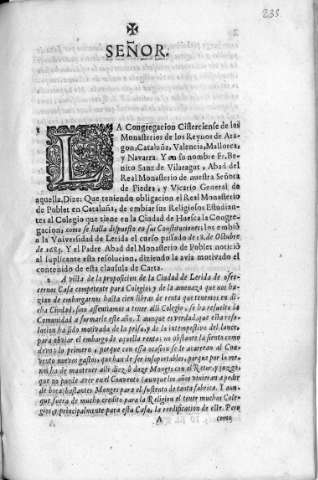 238
SEÑOR.
1 LA Congregacion Cisterciense de los
Monasterios de los Reynos de Ara-
gon, Cataluña, Valencia, Mallorca,
y Navarra. Y en su nombre Fr. Be-
nito Sanz de Vilaragut, Abad del
Real Monasterio de nuestra Señora
de Piedra, y Vicario General de
aquella, Dize: Que teniendo obligacion el Real Monasterio
de Poblet en Cataluña, de embiar sus Religiosos Estudian-
tes al Colegio que tiene en la Ciudad de Huesca la Congre-
gacion, como se halla dispuesto en sus Constituciones; los embiò
a la Universidad de Lerida el curso passado de 18. de Octubre
de 1685. Y el Padre Abad del Monasterio de Poblet noticiò
al suplicante esta resolucion, diziendo la avia motivado el
contenido de esta clausula de Carta.
2 A vista de la proposicion de la Ciudad de Lerida de ofre-
cernos Casa competente para Colegio, y de la amenaza que nos ha-
gian de embargarnos hasta cien libras de renta que tenemos en di-
cha Ciudad, sino assentiamos a tener allì Colegio, se ha resuelto la
Comunidad a admitir esta casa. Y aunque es verdad, que esta reso-
lucion ha sido motivada de la prisa, y de lo intempestivo del lance,
para obviar el embargo de aquella renta; no obstante la siento como
devìa lo primero, porque con essa ocasion se le acarrean al Con-
vento nuevos gastos, que han de ser insoportables, porque por lo me-
nos ha de mantener allì diez, ò doze Monges con el Retor, y juzgo,
que no puede aver en el Convento (aunque los años vinieran a pedir
de boca) bastantes Monges para el sustento de tanta fabrica. Y aun-
que fuera de mucho credito para la Religion el tener muchos Cole-
gios, y principalmente para esta Casa, la reedificacion de esse. Pero
A como